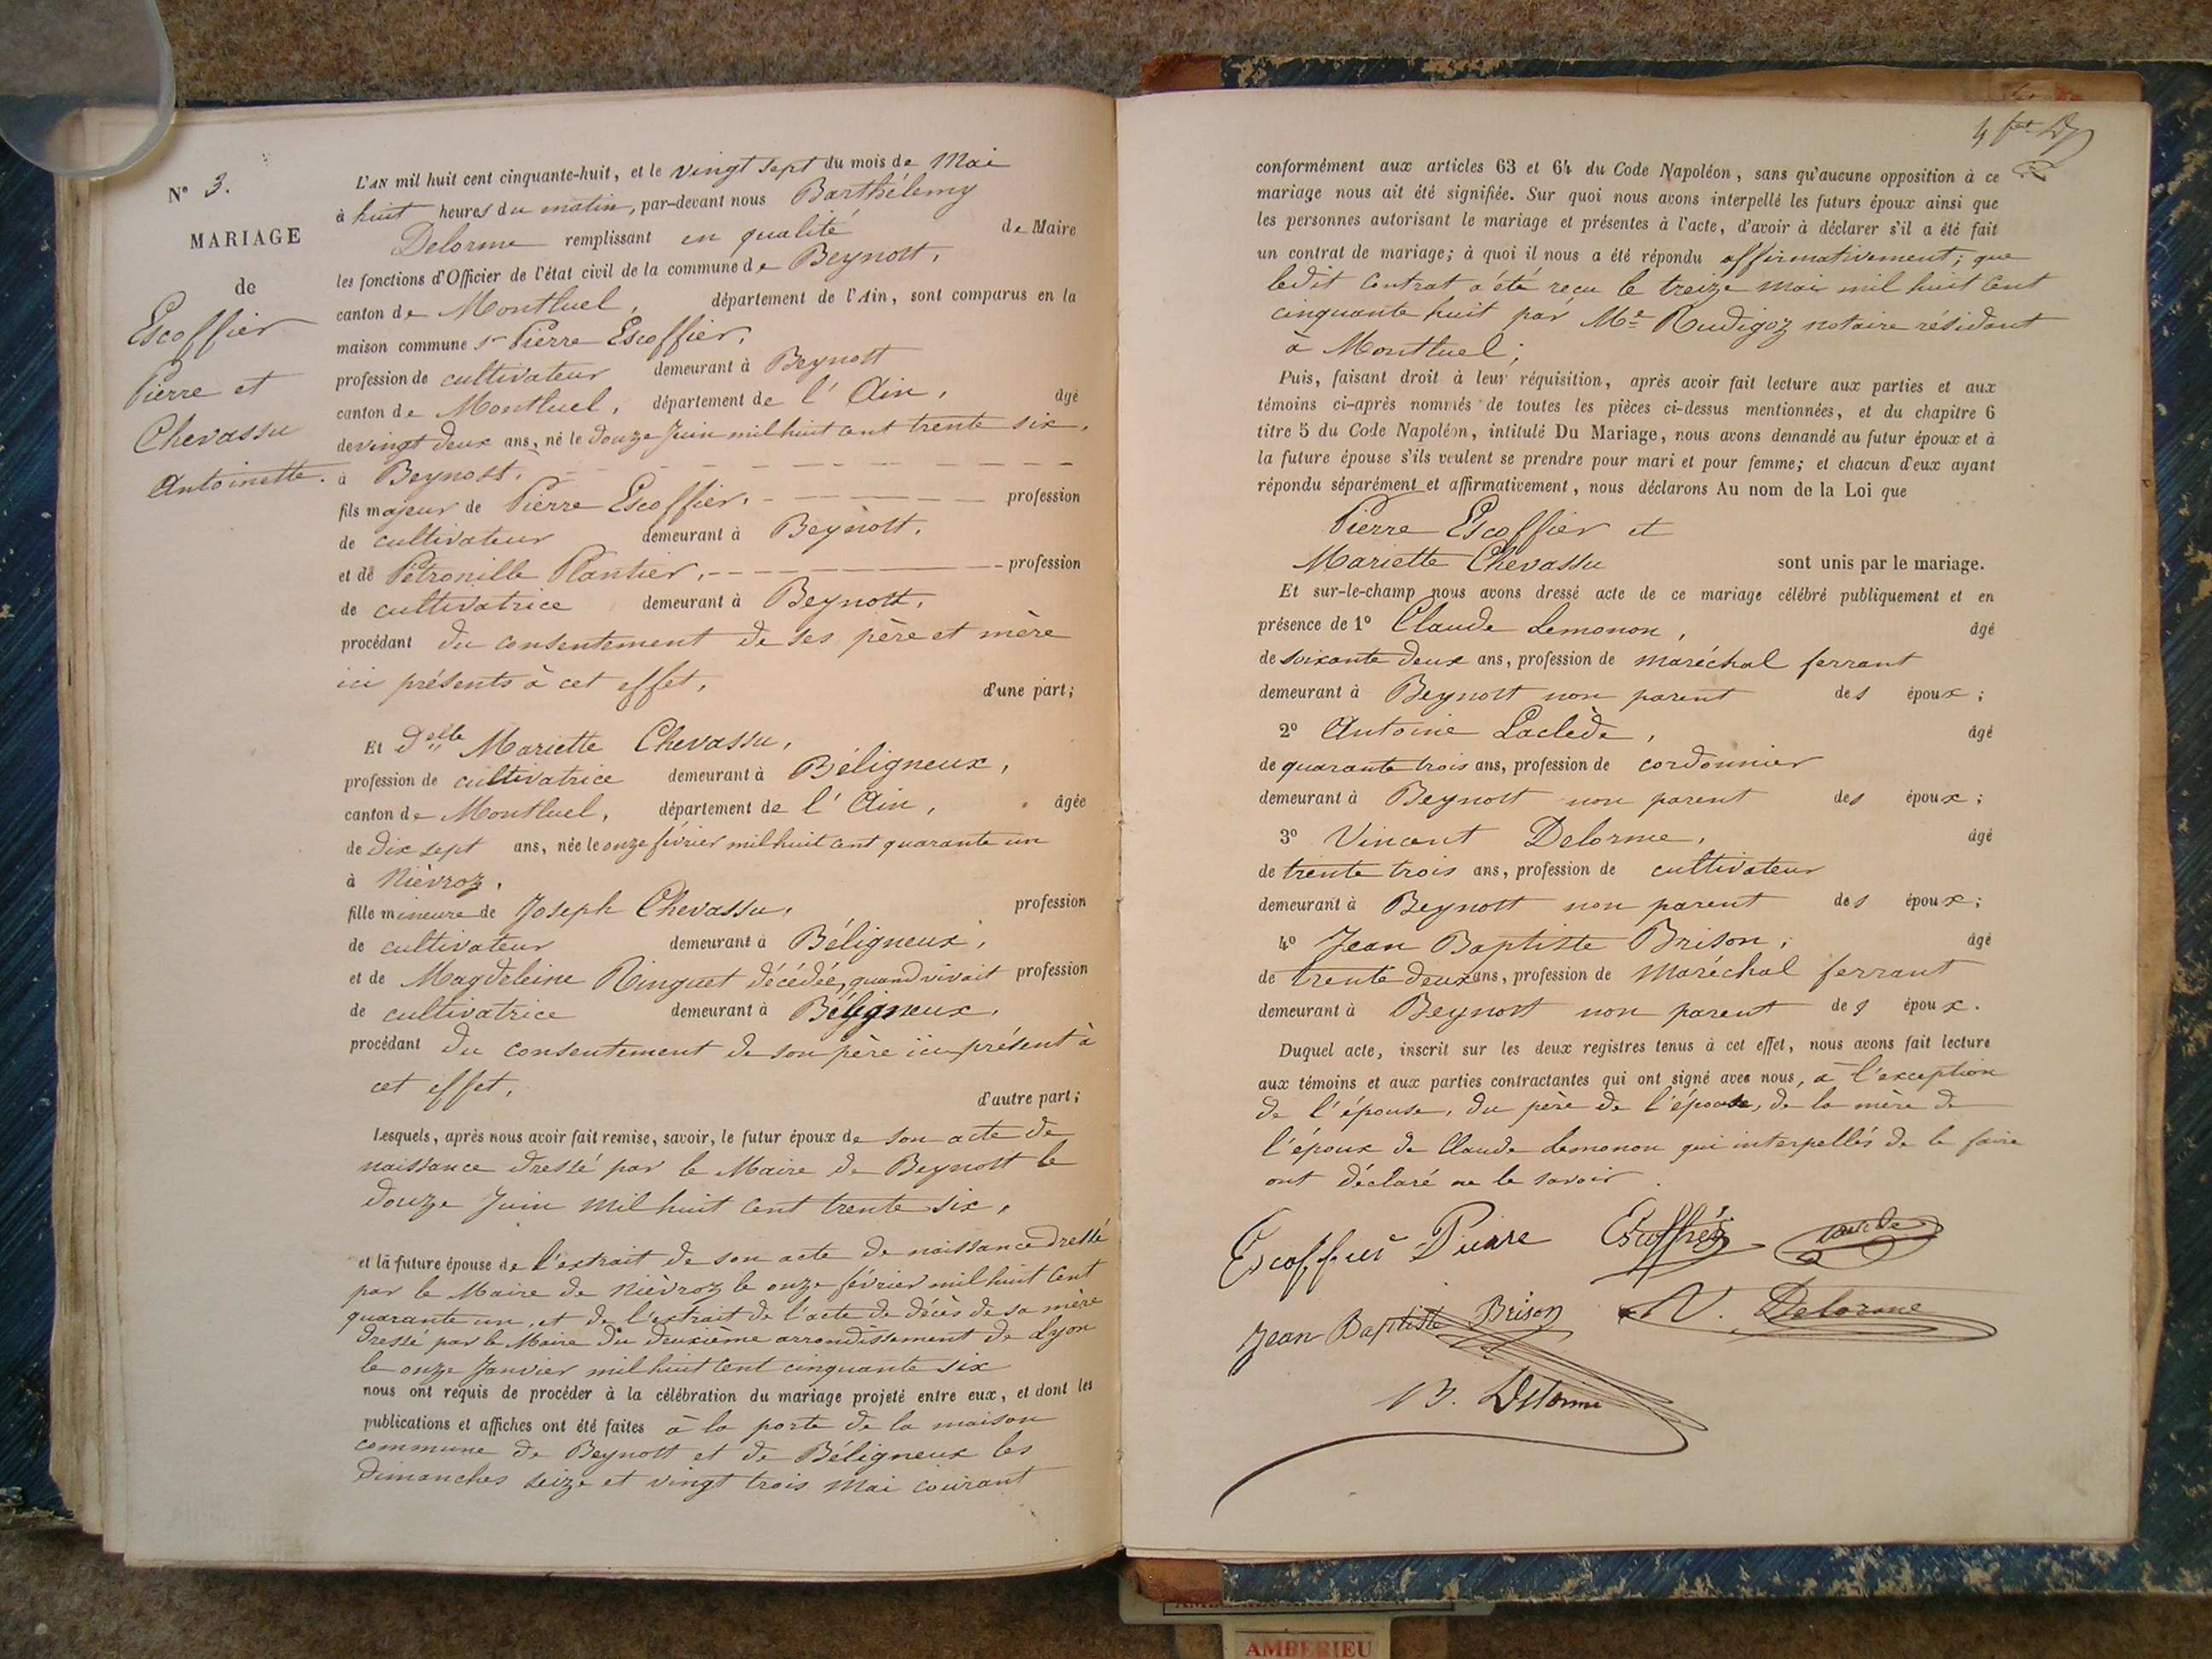 N° 3.
MARIAGE
de
Escoffier
Pierre et
Chevassu
Antoinette.
L'AN mil huit cent cinquante-huit, et le vingt sept du mois de Mai
à huit heures du matin, par-devant nous Barthélemy
Delorme remplissant en qualité de Maire
les fonctions d'Officier de l'état civil de la commune de Beynost,
canton de Montluel, département de l'Ain, sont comparus en la
maison commune sr Pierre Escoffier,
profession de cultivateur demeurant à Beynost
canton de Montluel, département de l'Ain, âgé
de vingt deux ans, né le douze Juin mil huit cent trente six,
à Beynost,
fils majeur de Pierre Escoffier, profession
de cultivateur demeurant à Beynost,
et de Pétronille Plantier, profession
de cultivatrice demeurant à Beynost,
procédant du consentement de ses père et mère
ici présents à cet effet, d'une part;
Et delle Mariette Chevassu,
profession de cultivatrice demeurant à Béligneux,
canton de Montluel, département de l'Ain, âgée
de dix sept ans, née le onze février mil huit cent quarante un
à Nièvroz,
fille mineure de Joseph Chevassu, profession
de cultivateur demeurant à Béligneux,
et de Magdeleine Ringuet décédée, quand vivait profession
de cultivatrice demeurant à Béligneux,
procédant du consentement de son père ici présent à
cet effet, d'autre part;
Lesquels, après nous avoir fait remise, savoir, le futur époux de son acte de
naissance dressé par le Maire de Beynost le
douze Juin mil huit cent trente six,
et la future épouse de l'extrait de son acte de naissance dressé
par le Maire de Nièvroz le onze février mil huit cent
quarante un, et de l'extrait de l'acte de décès de sa mère
dressé par le Maire du deuxième arrondissement de Lyon
le onze Janvier mil huit cent cinquante six
nous ont requis de procéder à la célébration du mariage projeté entre eux, et dont les
publications et affiches ont été faites à la porte de la maison
commune de Beynost et de Béligneux les
dimanches seize et vingt trois Mai courant
conformément aux articles 63 et 64 du Code Napoléon, sans qu'aucune opposition à ce
mariage nous ait été signifiée. Sur quoi nous avons interpellé les futurs époux ainsi que
les personnes autorisant le mariage et présentes à l'acte, d'avoir à déclarer s'il a été fait
un contrat de mariage; à quoi il nous a été répondu affirmativement; que
ledit contrat a été reçu le treize mai mil huit cent
cinquante huit par Me Rudigoz notaire résidant
à Montluel;
Puis, faisant droit à leur réquisition, après avoir fait lecture aux parties et aux
témoins ci-après nommés de toutes les pièces ci-dessus mentionnées, et du chapitre 6
titre 5 du Code Napoléon, intitulé Du Mariage, nous avons demandé au futur époux et à
la future épouse s'ils veulent se prendre pour mari et pour femme; et chacun d'eux ayant
répondu séparément et affirmativement, nous déclarons Au nom de la Loi que
Pierre Escoffier et
Mariette Chevassu sont unis par le mariage.
Et sur-le-champ nous avons dressé acte de ce mariage célébré publiquement et en
présence de 1° Claude Lemonon, âgé
de soixante deux ans, profession de maréchal ferrant
demeurant à Beynost non parent des époux;
2° Antoine Laclède, âgé
de quarante trois ans, profession de cordonnier
demeurant à Beynost non parent des époux;
3° Vincent Delorme, âgé
de trente trois ans, profession de cultivateur
demeurant à Beynost non parent des époux;
4° Jean Baptiste Brison, âgé
de trente deux ans, profession de Maréchal ferrant
demeurant à Beynost non parent des époux.
Duquel acte, inscrit sur les deux registres tenus à cet effet, nous avons fait lecture
aux témoins et aux parties contractantes qui ont signé avec nous, à l'exception
de l'épouse, du père de l'épouse, de la mère de
l'époux de Claude Lemonon qui interpellés de le faire
ont déclaré ne le savoir.
Escoffier Pierre Escoffier
Jean Baptiste Brison V. Delorme
B. Delorme
AMBERIEU